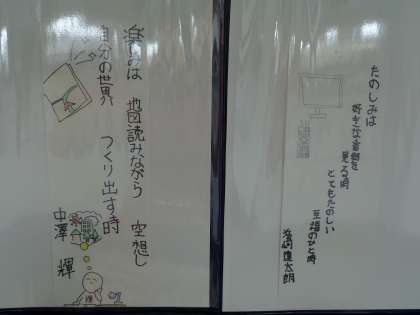 たのしみは
好きな番組を
見る時
とてもたのしい
至福のひと時
楽みは 地図読みながら 空想し
自分の世界 つくり出す時
中澤 輝